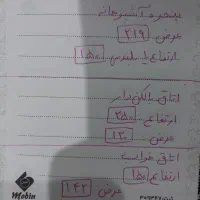 پنجره آشپزخانه
عرض ۲۱۹
ارتفاع با بلندیس ۱۵۰
اتاق بالکن دار
ارتفاع ۲۵۰
عرض ۱۳۰
اتاق خواب
ارتفاع ۱۵۰
عرض ۱۴۲
Mobin